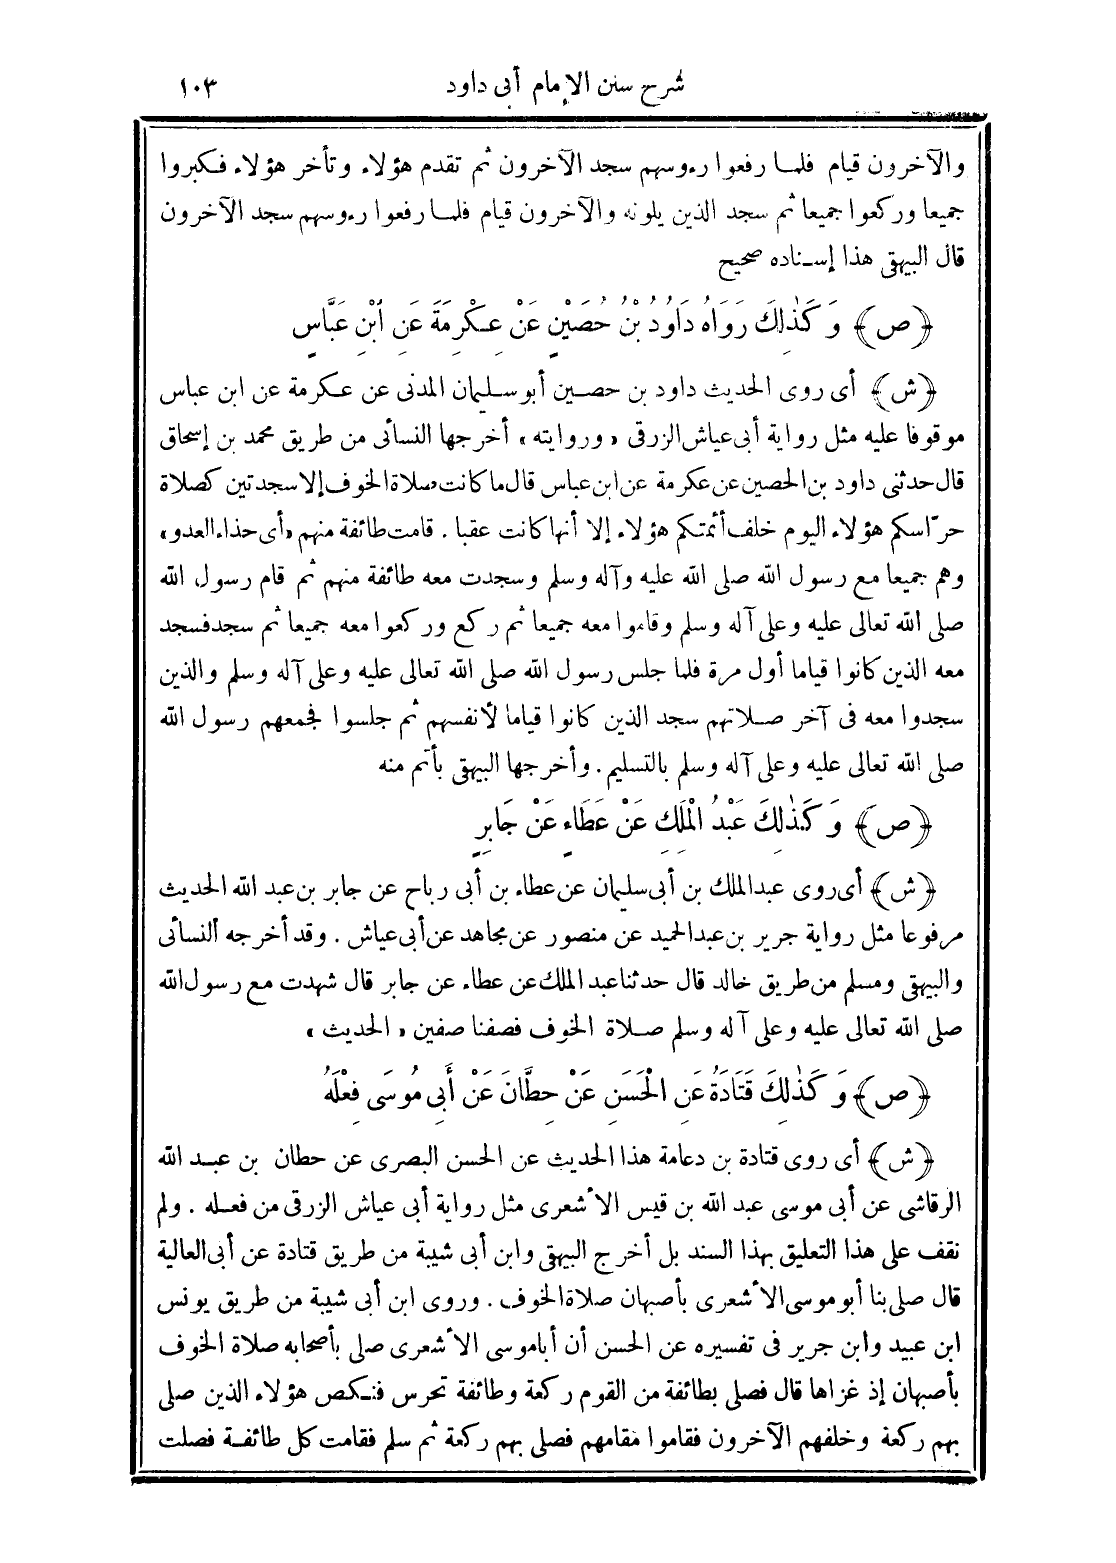 شرح سنن الإمام أبى داود ١٠٣
والآخرون قيام فلما رفعوا رءوسهم سجد الآخرون ثم تقدم هؤلاء وتأخر هؤلاء فكبروا
جميعا وركعوا جميعا ثم سجد الذين يلونه والآخرون قيام فلما رفعوا رءوسهم سجد الآخرون
قال البيهقى هذا إسناده صحيح
﴿ص﴾ وَكَذٰلِكَ رَوَاهُ دَاوُدُ بْنُ حُصَيْنٍ عَنْ عِكْرِمَةَ عَنِ ابْنِ عَبَّاسٍ
﴿ش﴾ أى روى الحديث داود بن حصين أبو سليمان المدنى عن عكرمة عن ابن عباس
موقوفا عليه مثل رواية أبى عياش الزرقى «وروايته» أخرجها النسائى من طريق محمد بن إسحاق
قال حدثنى داود بن الحصين عن عكرمة عن ابن عباس قال ما كانت صلاة الخوف إلا سجدتين كصلاة
حرّاسكم هؤلاء اليوم خلف أئمتكم هؤلاء إلا أنها كانت عقبا . قامت طائفة منهم «أى حذاء العدو»
وهم جميعا مع رسول الله صلى الله عليه وآله وسلم وسجدت معه طائفة منهم ثم قام رسول الله
صلى الله تعالى عليه وعلى آله وسلم وقاموا معه جميعا ثم ركع وركعوا معه جميعا ثم سجد فسجد
معه الذين كانوا قياما أول مرة فلما جلس رسول الله صلى الله تعالى عليه وعلى آله وسلم والذين
سجدوا معه فى آخر صلاتهم سجد الذين كانوا قياما لأنفسهم ثم جلسوا فجمعهم رسول الله
صلى الله تعالى عليه وعلى آله وسلم بالتسليم . وأخرجها البيهقى بأتم منه
﴿ص﴾ وَكَذٰلِكَ عَبْدُ الْمَلِكِ عَنْ عَطَاءٍ عَنْ جَابِرٍ
﴿ش﴾ أى روى عبد الملك بن أبى سليمان عن عطاء بن أبى رباح عن جابر بن عبد الله الحديث
مرفوعا مثل رواية جرير بن عبد الحميد عن منصور عن مجاهد عن أبى عياش . وقد أخرجه النسائى
والبيهقى ومسلم من طريق خالد قال حدثنا عبد الملك عن عطاء عن جابر قال شهدت مع رسول الله
صلى الله تعالى عليه وعلى آله وسلم صلاة الخوف فصفنا صفين «الحديث»
﴿ص﴾ وَكَذٰلِكَ قَتَادَةُ عَنِ الْحَسَنِ عَنْ حِطَّانَ عَنْ أَبِى مُوسَى فِعْلَهُ
﴿ش﴾ أى روى قتادة بن دعامة هذا الحديث عن الحسن البصرى عن حطان بن عبد الله
الرقاشى عن أبى موسى عبد الله بن قيس الأشعرى مثل رواية أبى عياش الزرقى من فعله . ولم
نقف على هذا التعليق بهذا السند بل أخرج البيهقى وابن أبى شيبة من طريق قتادة عن أبى العالية
قال صلى بنا أبو موسى الأشعرى بأصبهان صلاة الخوف . وروى ابن أبى شيبة من طريق يونس
ابن عبيد وابن جرير فى تفسيره عن الحسن أن أبا موسى الأشعرى صلى بأصحابه صلاة الخوف
بأصبهان إذ غزاها قال فصلى بطائفة من القوم ركعة وطائفة تحرس فنكص هؤلاء الذين صلى
بهم ركعة وخلفهم الآخرون فقاموا مقامهم فصلى بهم ركعة ثم سلم فقامت كل طائفة فصلت